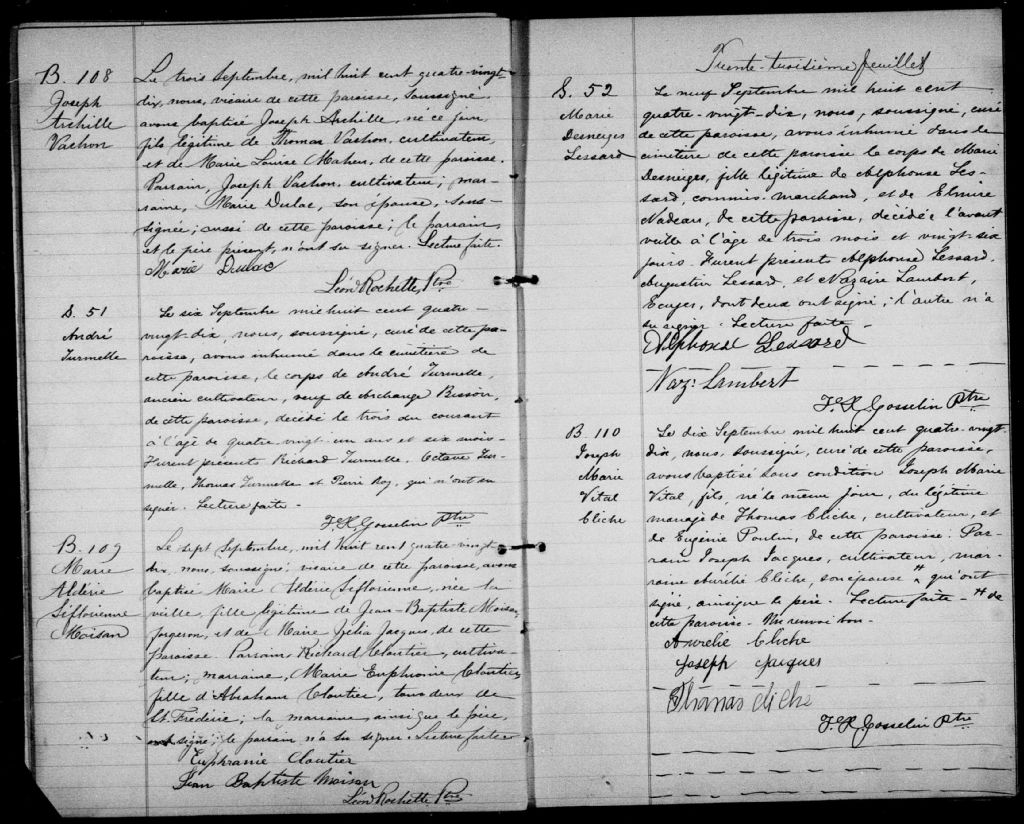 B. 108
Joseph
Archille
Vachon
Le trois Septembre, mil huit cent quatre-vingt
dix, nous, vicaire de cette paroisse, soussigné
avons baptisé Joseph Archille, né ce jour,
fils légitime de Thomas Vachon, cultivateur,
et de Marie Louise Maheu, de cette paroisse.
Parrain, Joseph Vachon, cultivateur; mar-
raine, Marie Dulac, son épouse, sous-
signée; aussi de cette paroisse; le parrain
et le père présent, n'ont su signer. Lecture faite.
Marie Dulac
Léon Rochette, Ptre
S. 51
André
Turmelle
Le six Septembre mil huit cent quatre-
vingt-dix, nous, soussigné, curé de cette pa-
roisse, avons inhumé dans le cimetière de
cette paroisse, le corps de André Turmelle,
ancien cultivateur, veuf de Archange Bisson,
de cette paroisse, décédé le trois du courant
à l'âge de quatre vingt un ans et six mois.
Furent présents Richard Turmelle, Octave Tur-
melle, Thomas Turmelle et Pierre Roy, qui n'ont su
signer. Lecture faite.
F. X. Gosselin Ptre
B. 109
Marie
Aldérie
Siflorienne
Moisan
Le sept Septembre, mil huit cent quatre-vingt
dix, nous, soussigné, vicaire de cette paroisse, avons
baptisé Marie Aldérie Siflorienne, née la
veille, fille légitime de Jean-Baptiste Moisan
forgeron, et de Marie Julia Jacques, de cette
paroisse. Parrain, Richard Cloutier, cultiva-
teur; marraine, Marie Euphranie Cloutier,
fille d'Abraham Cloutier, tous deux de
St. Frédéric; la marraine, ainsi que le père,
ont signé; le parrain n'a su signer. Lecture faite.
Euphranie Cloutier
Jean Baptiste Moisan
Léon Rochette Ptre
Trente-troisième feuillet
S. 52
Marie
Desneiges
Lessard
Le neuf Septembre mil huit cent
quatre-vingt-dix, nous, soussigné, curé
de cette paroisse, avons inhumé dans le
cimetière de cette paroisse le corps de Marie
Desneiges, fille légitime de Alphonse Les-
sard, commis-marchand, et de Elmire
Nadeau, de cette paroisse, décédée l'avant
veille à l'âge de trois mois et vingt-six
jours. Furent présents Alphonse Lessard,
Augustin Lessard, et Nazaire Lambert,
Ecuyer, dont deux ont signé; l'autre n'a
su signer. Lecture faite.
Alphonse Lessard
Naz: Lambert
F. X. Gosselin Ptre
B. 110
Joseph
Marie
Vital
Cliche
Le dix Septembre mil huit cent quatre-vingt-
dix, nous, soussigné, curé de cette paroisse,
avons baptisé sous condition Joseph Marie
Vital, fils, né le même jour, du légitime
mariage de Thomas Cliche, cultivateur, et
de Eugénie Poulin, de cette paroisse. Par-
rain Joseph Jacques, cultivateur, mar-
raine Aurélie Cliche, son épouse # qui ont
signé, ainsi que le père. Lecture faite - # de
cette paroisse. Un renvoi bon.
Aurelie Cliche
Joseph Jacques
Thomas Cliche
F. X. Gosselin Ptre